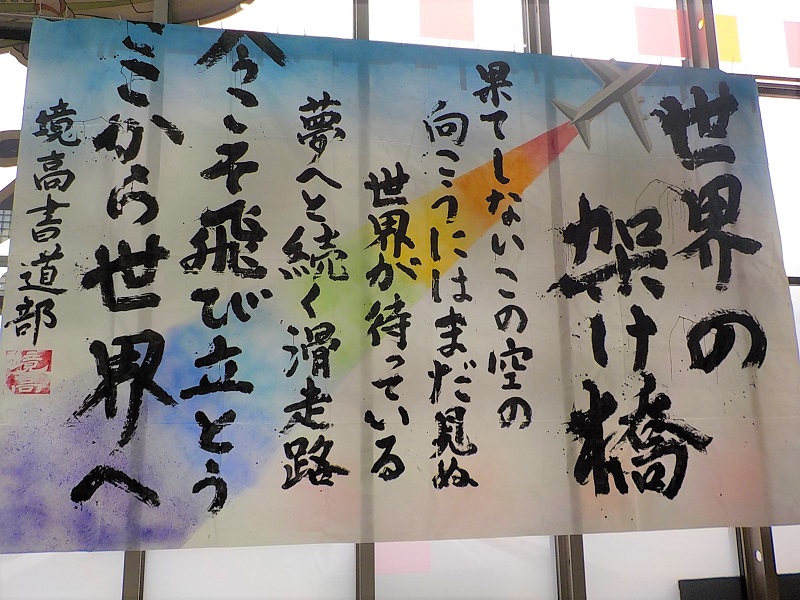 世界の
架け橋
果てしないこの空の
向こうにはまだ見ぬ
世界が待っている
夢へと続く滑走路
今こそ飛び立とう
ここから世界へ
境高書道部
境高